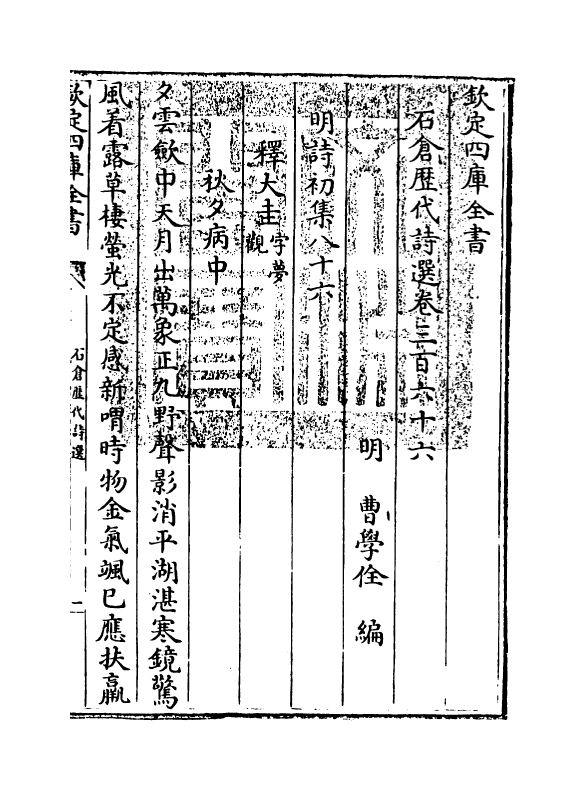 欽定四庫全書
石倉歷代詩選卷三百六十六
明 曹學佺 編
明詩初集八十六
釋大圭字夢觀
秋夕病中
夕雲歛中天月出萬象正九野聲影消平湖湛寒鏡驚
風着露草棲螢光不定感新喟時物金氣颯已應扶羸
欽定四庫全書
石倉歷代詩選